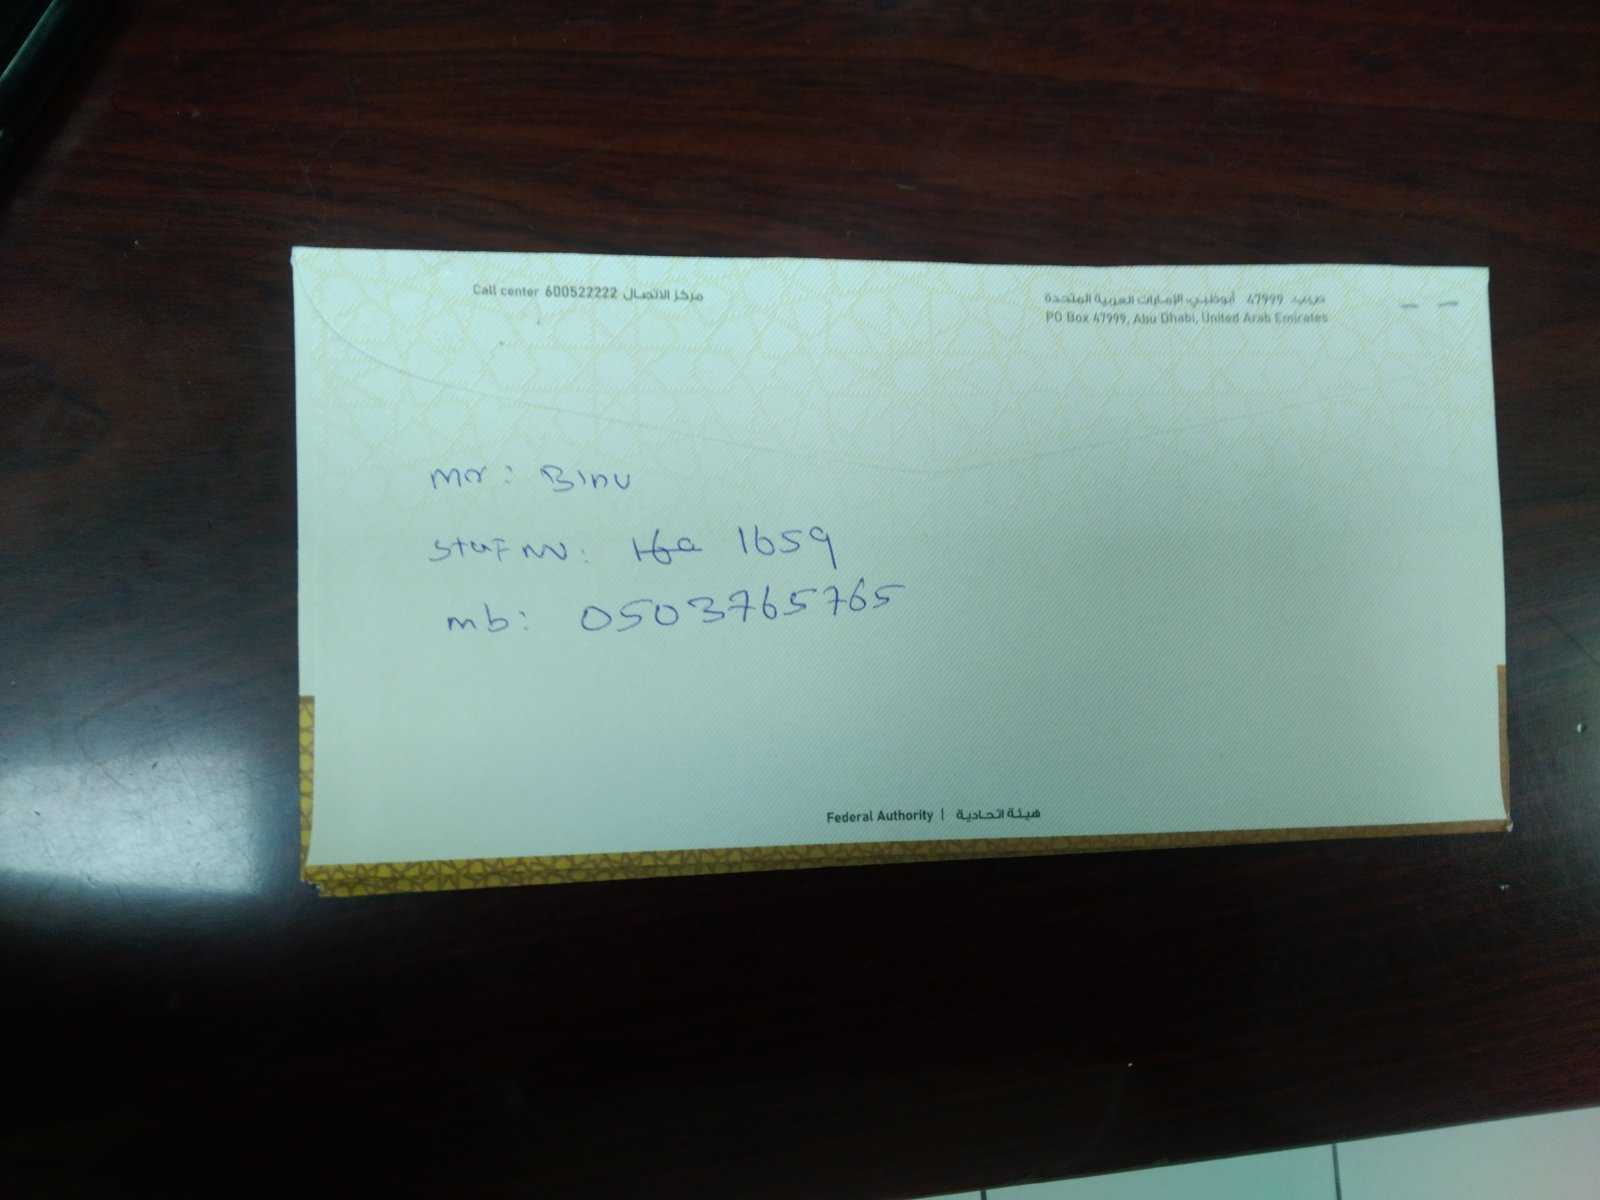 Call center 600522222 مركز الاتصال
ص.ب 47999 أبوظبي، الإمارات العربية المتحدة
PO Box 47999, Abu Dhabi, United Arab Emirates
mr: Binu
staf no: 1659
mb: 0503765765
Federal Authority | هيئة اتحادية